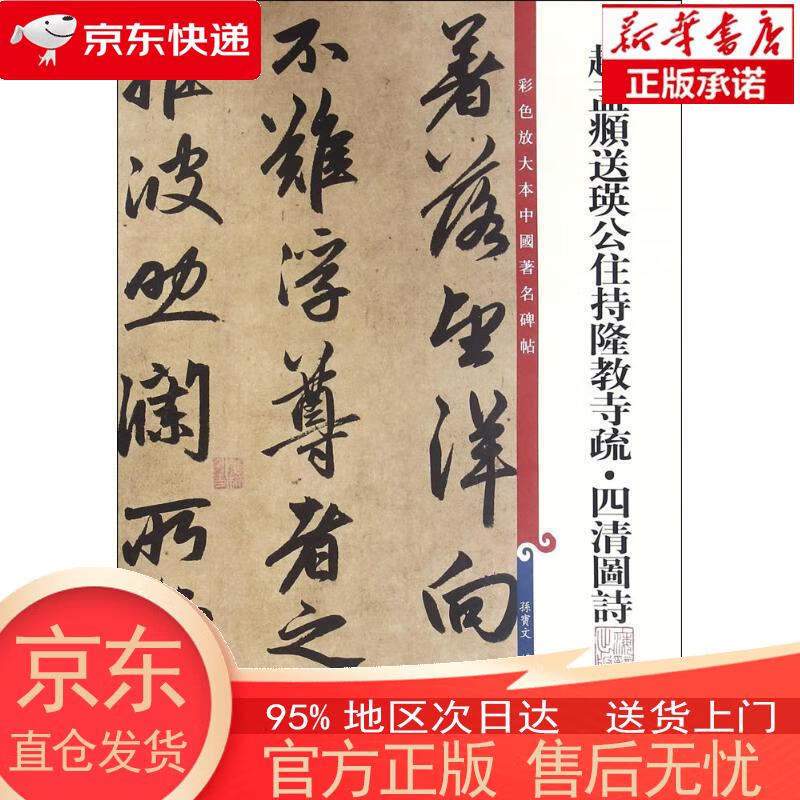 京东快递
新华书店
正版承诺
著落望洋向
不難浮尊者之
波此瀾所
彩色放大本中國著名碑帖
孟頫送瑛公住持隆教寺疏·四清圖詩
孫寶文
京东
直仓发货
95% 地区次日达 送货上门
官方正版 售后无忧